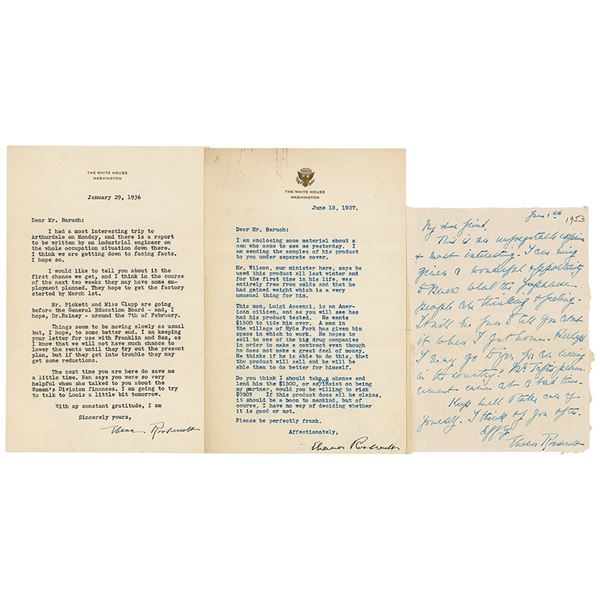 THE WHITE HOUSE
WASHINGTON
January 29, 1936
Dear Mr. Baruch:
I had a most interesting trip to
Arthurdale on Monday, and there is a report
to be written by an industrial engineer on
the whole occupation situation down there.
I think we are getting down to facing facts.
I hope so.
I would like to tell you about it the
first chance we get, and I think in the course
of the next two weeks they may have some em-
ployment planned. They hope to get the factory
started by March 1st.
Mr. Pickett and Miss Clapp are going
before the General Education Board - and, I
hope, Dr. Rainey - around the 7th of February.
Things seem to be moving slowly as usual
but, I hope, to some better end. I am keeping
your letter for use with Franklin and Rex, as
I know that we will not have much chance to
lower the rents until they try out the present
plan, but if they get into trouble they may
get some reductions.
The next time you are here do save me
a little time. Nan says you were very
helpful when she talked to you about the
Women's Division finances. I am going to try
to talk to Louis a little bit tomorrow.
With my constant gratitude, I am
Sincerely yours,
Eleanor Roosevelt
THE WHITE HOUSE
WASHINGTON
June 18, 1937.
Dear Mr. Baruch:
I am enclosing some material about a
man who came to see me yesterday. I
am sending the samples of his product
to you under separate cover.
Mr. Wilson, our minister here, says he
used this product all last winter and
for the first time in his life, was
entirely free from colds and that he
had gained weight which is a very
unusual thing for him.
This man, Luigi Ascensi, is an Amer-
ican citizen, and as you will see has
had his product tested. He wants
$1000 to tide him over. A man in
the village of Hyde Park has given him
space in which to work. He hopes to
sell to one of the big drug companies
in order to make a contract even though
he does not make a great deal of money.
He thinks if he is able to do this, that
the product will sell and he will be
able then to do better for himself.
Do you think I should take a chance and
lend him the $1000, or as/insist on being
my partner, would you be willing to risk
$750? If this product does all he claims,
it should be a boon to mankind, but of
course, I have no way of deciding whether
it is good or not.
Please be perfectly frank.
Affectionately,
Eleanor Roosevelt
1953
My dear friend,
This is an unforgettable
& most interesting. I am being
given a wonderful opportunity
to know what the Japanese
people are thinking & feeling.
It will be fun to tell you about
it when I get home. Perhaps
I may go to you are
in the country. Mr Taft's
came at a bad
Keep well & take care of
yourself. I think of you often.
Eleanor Roosevelt